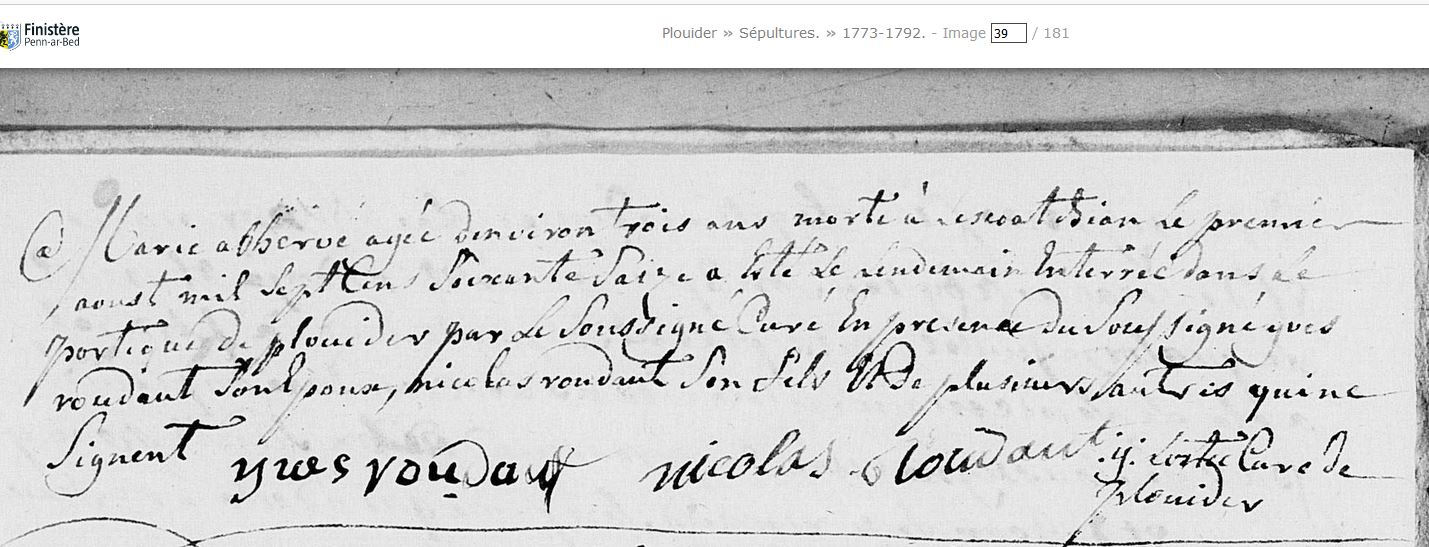 Finistère
Penn-ar-Bed
Plouider » Sépultures. » 1773-1792. - Image 39 / 181
Marie abhervé agée denviron trois ans morte à le premier
aoust mil sept Cens Soixante Saize a Esté Le lendemain Enterrée dans Le
portique de plouider par Le Soussigné Curé En presence du Soussigné yves
roudaut Son Epoux, nicolas roudaut Son fils Et de plusieurs autres qui ne
Signent yves roudaut nicolas Roudaut y. Curé de
plouider